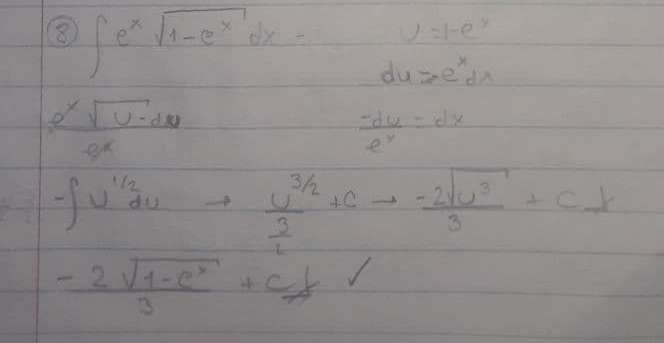 ⑧ ∫ e^x √(1-e^x) dx = u = 1-e^x
du = e^x dx
e^x √u -du / e^x   -du / e^x = dx
-∫ u^1/2 du → u^3/2 / 3/2 + c → -2√u^3 / 3 + c
-2√(1-e^x) / 3 + c ✓